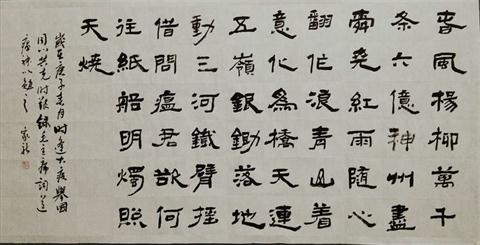 春風楊柳萬千
条六億神州盡
舜堯紅雨隨心
翻作浪青山着
意化為橋天連
五嶺銀鋤落地
動三河鐵臂搖
借問瘟君欲何
往紙船明燭照
天燒
歲在庚子春月时逢大疫舉國
同心共克时艱錄毛主席詞送
瘟神以